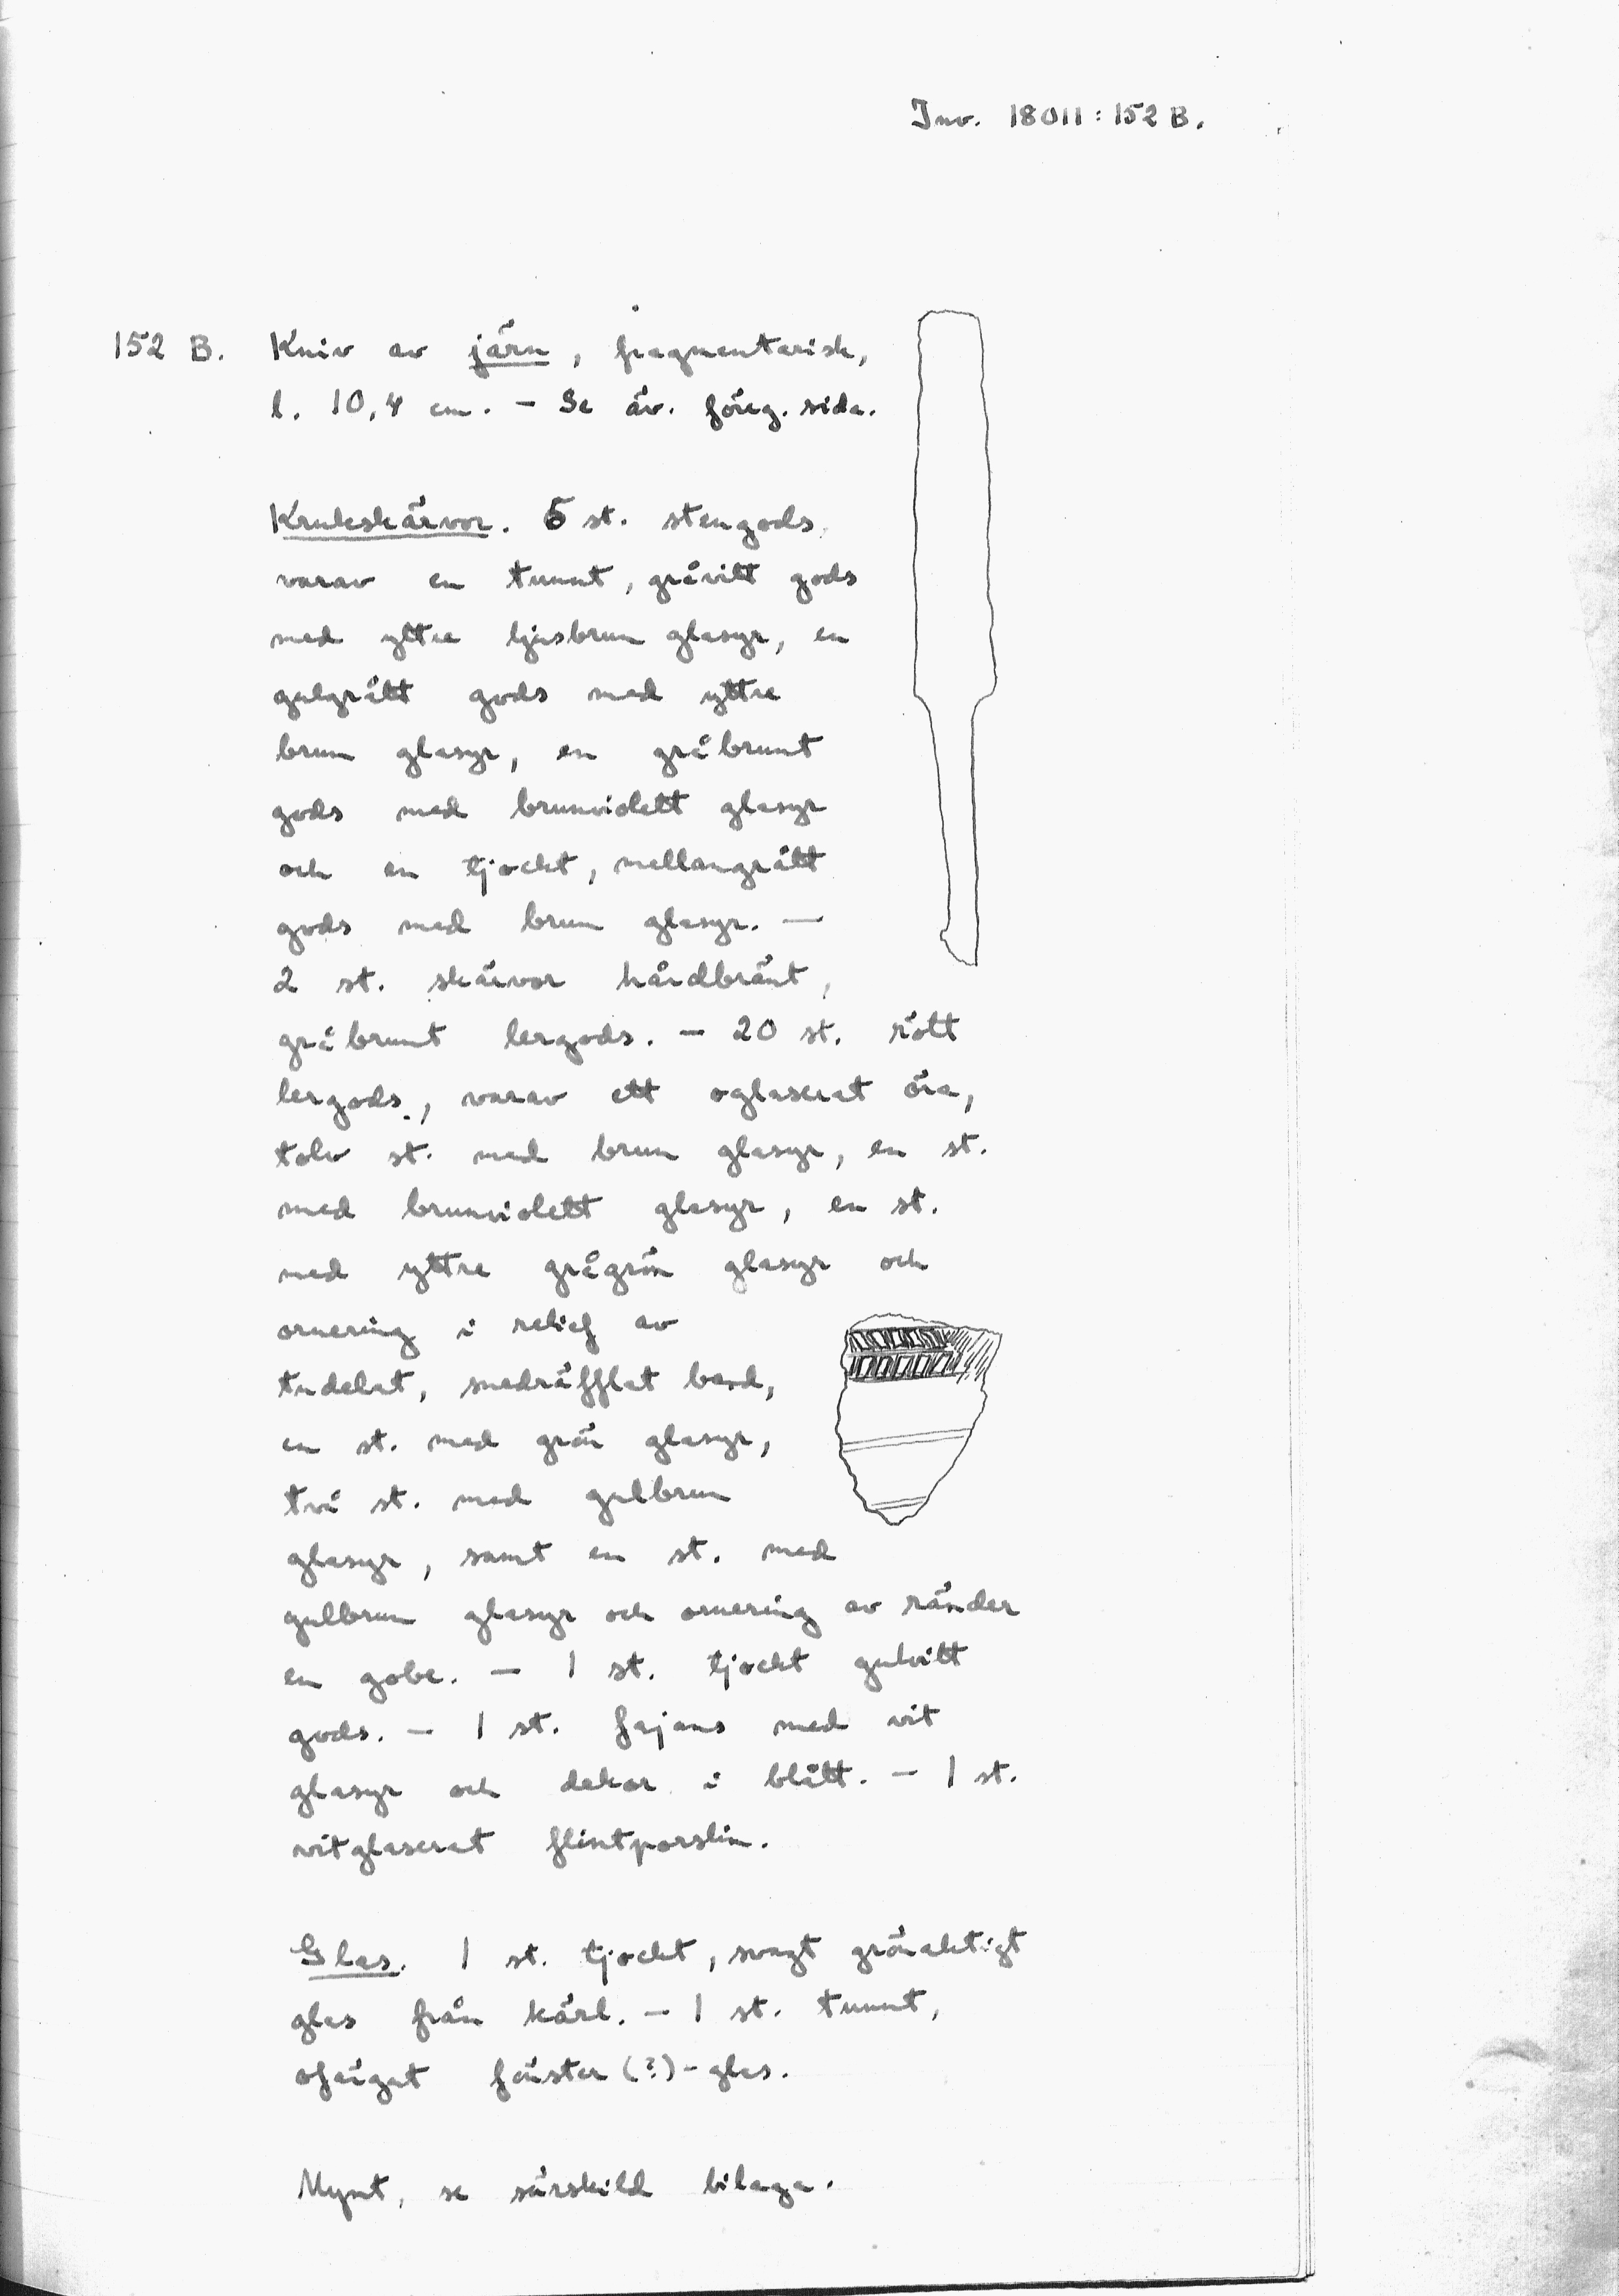 Inv. 18011:152 B.
152 B. Kniv av järn, fragmentarisk,
l. 10,4 cm. - Se äv. föreg. sida.
Krukskärvor. 5 st. stengods,
varav en tunnt, gråvitt gods
med yttre ljusbrun glasyr, en
gulgrått gods med yttre
brun glasyr, en gråbrunt
gods med brunviolett glasyr
och en tjockt, mellangrått
gods med brun glasyr. —
2 st. skärvor hårdbränt,
gråbrunt lergods. - 20 st. rött
lergods, varav ett oglaserat öra,
tolv st. med brun glasyr, en st.
med brunviolett glasyr, en st.
med yttre grågrön glasyr och
ornering i relief av
tudelat, snedräfflat band,
en st. med grön glasyr,
två st. med gulbrun
glasyr, samt en st. med
gulbrun glasyr och ornering av ränder
en gobe. - 1 st. tjockt gulvitt
gods. - 1 st. fajans med vit
glasyr och dekor i blått. - 1 st.
vitglaserat flintporslin.
Glas. 1 st. tjockt, svagt grönaktigt
glas från kärl. - 1 st. tunnt,
ofärgat fönster(?)-glas.
Mynt, se särskild bilaga.